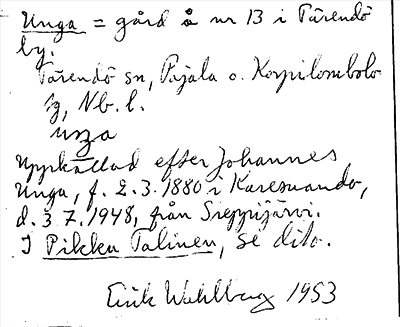 Unga = gård å nr 13 i Tärendö
by.
Tärendö sn, Pajala o. Korpilombolo
tg, Nb. l.
uŋa
Uppkallad efter Johannes
Unga, f. 2.3.1880 i Karesuando,
d. 3.7.1948, från Sieppijärvi.
J Pikku Talinen, se dito.
Erik Wahlberg 1953